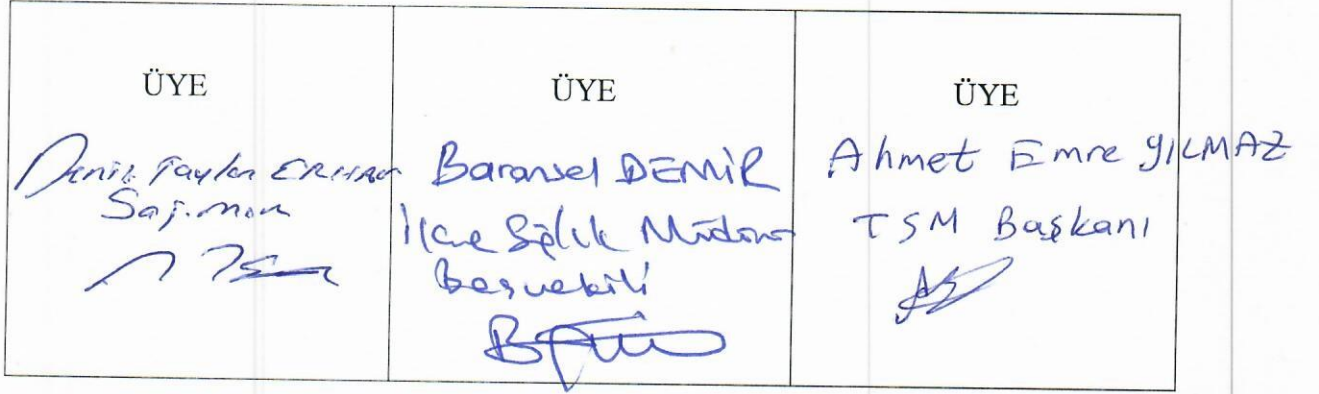 ÜYE
Deniz Taylan ERHAN
ÜYE
Baransel DEMİR
İlçe Sağlık Müdürü
Başvekili
ÜYE
Ahmet Emre YILMAZ
TSM Başkanı